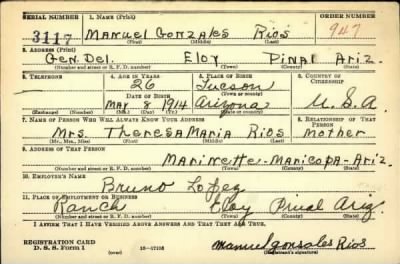 SERIAL NUMBER 1. NAME (Print) ORDER NUMBER
3117 MANUEL GONZALES RIOS 947
(First) (Middle) (Last)
2. ADDRESS (Print)
Gen. Del. ELOY PINAL ARIZ.
(Number and street or R. F. D. number) (Town) (County) (State)
3. TELEPHONE 4. AGE IN YEARS 5. PLACE OF BIRTH 6. COUNTRY OF CITIZENSHIP
26 Tucson
DATE OF BIRTH (Town or county)
MAY 8 1914 Arizona U.S.A.
(Exchange) (Number) (Mo.) (Day) (Yr.) (State or country)
7. NAME OF PERSON WHO WILL ALWAYS KNOW YOUR ADDRESS 8. RELATIONSHIP OF THAT PERSON
Mrs. Theresa Maria Rios Mother
(Mr., Mrs., Miss) (First) (Middle) (Last)
9. ADDRESS OF THAT PERSON
Marinette-Maricopa-Ariz.
(Number and street or R. F. D. number) (Town) (County) (State)
10. EMPLOYER'S NAME
Bruno Lopez
11. PLACE OF EMPLOYMENT OR BUSINESS
Ranch Eloy Pinal Ariz.
(Number and street or R. F. D. number) (Town) (County) (State)
I AFFIRM THAT I HAVE VERIFIED ABOVE ANSWERS AND THAT THEY ARE TRUE.
REGISTRATION CARD
D. S. S. Form 1 16-17105 Manuel gonzales Rios
(Registrant's signature)